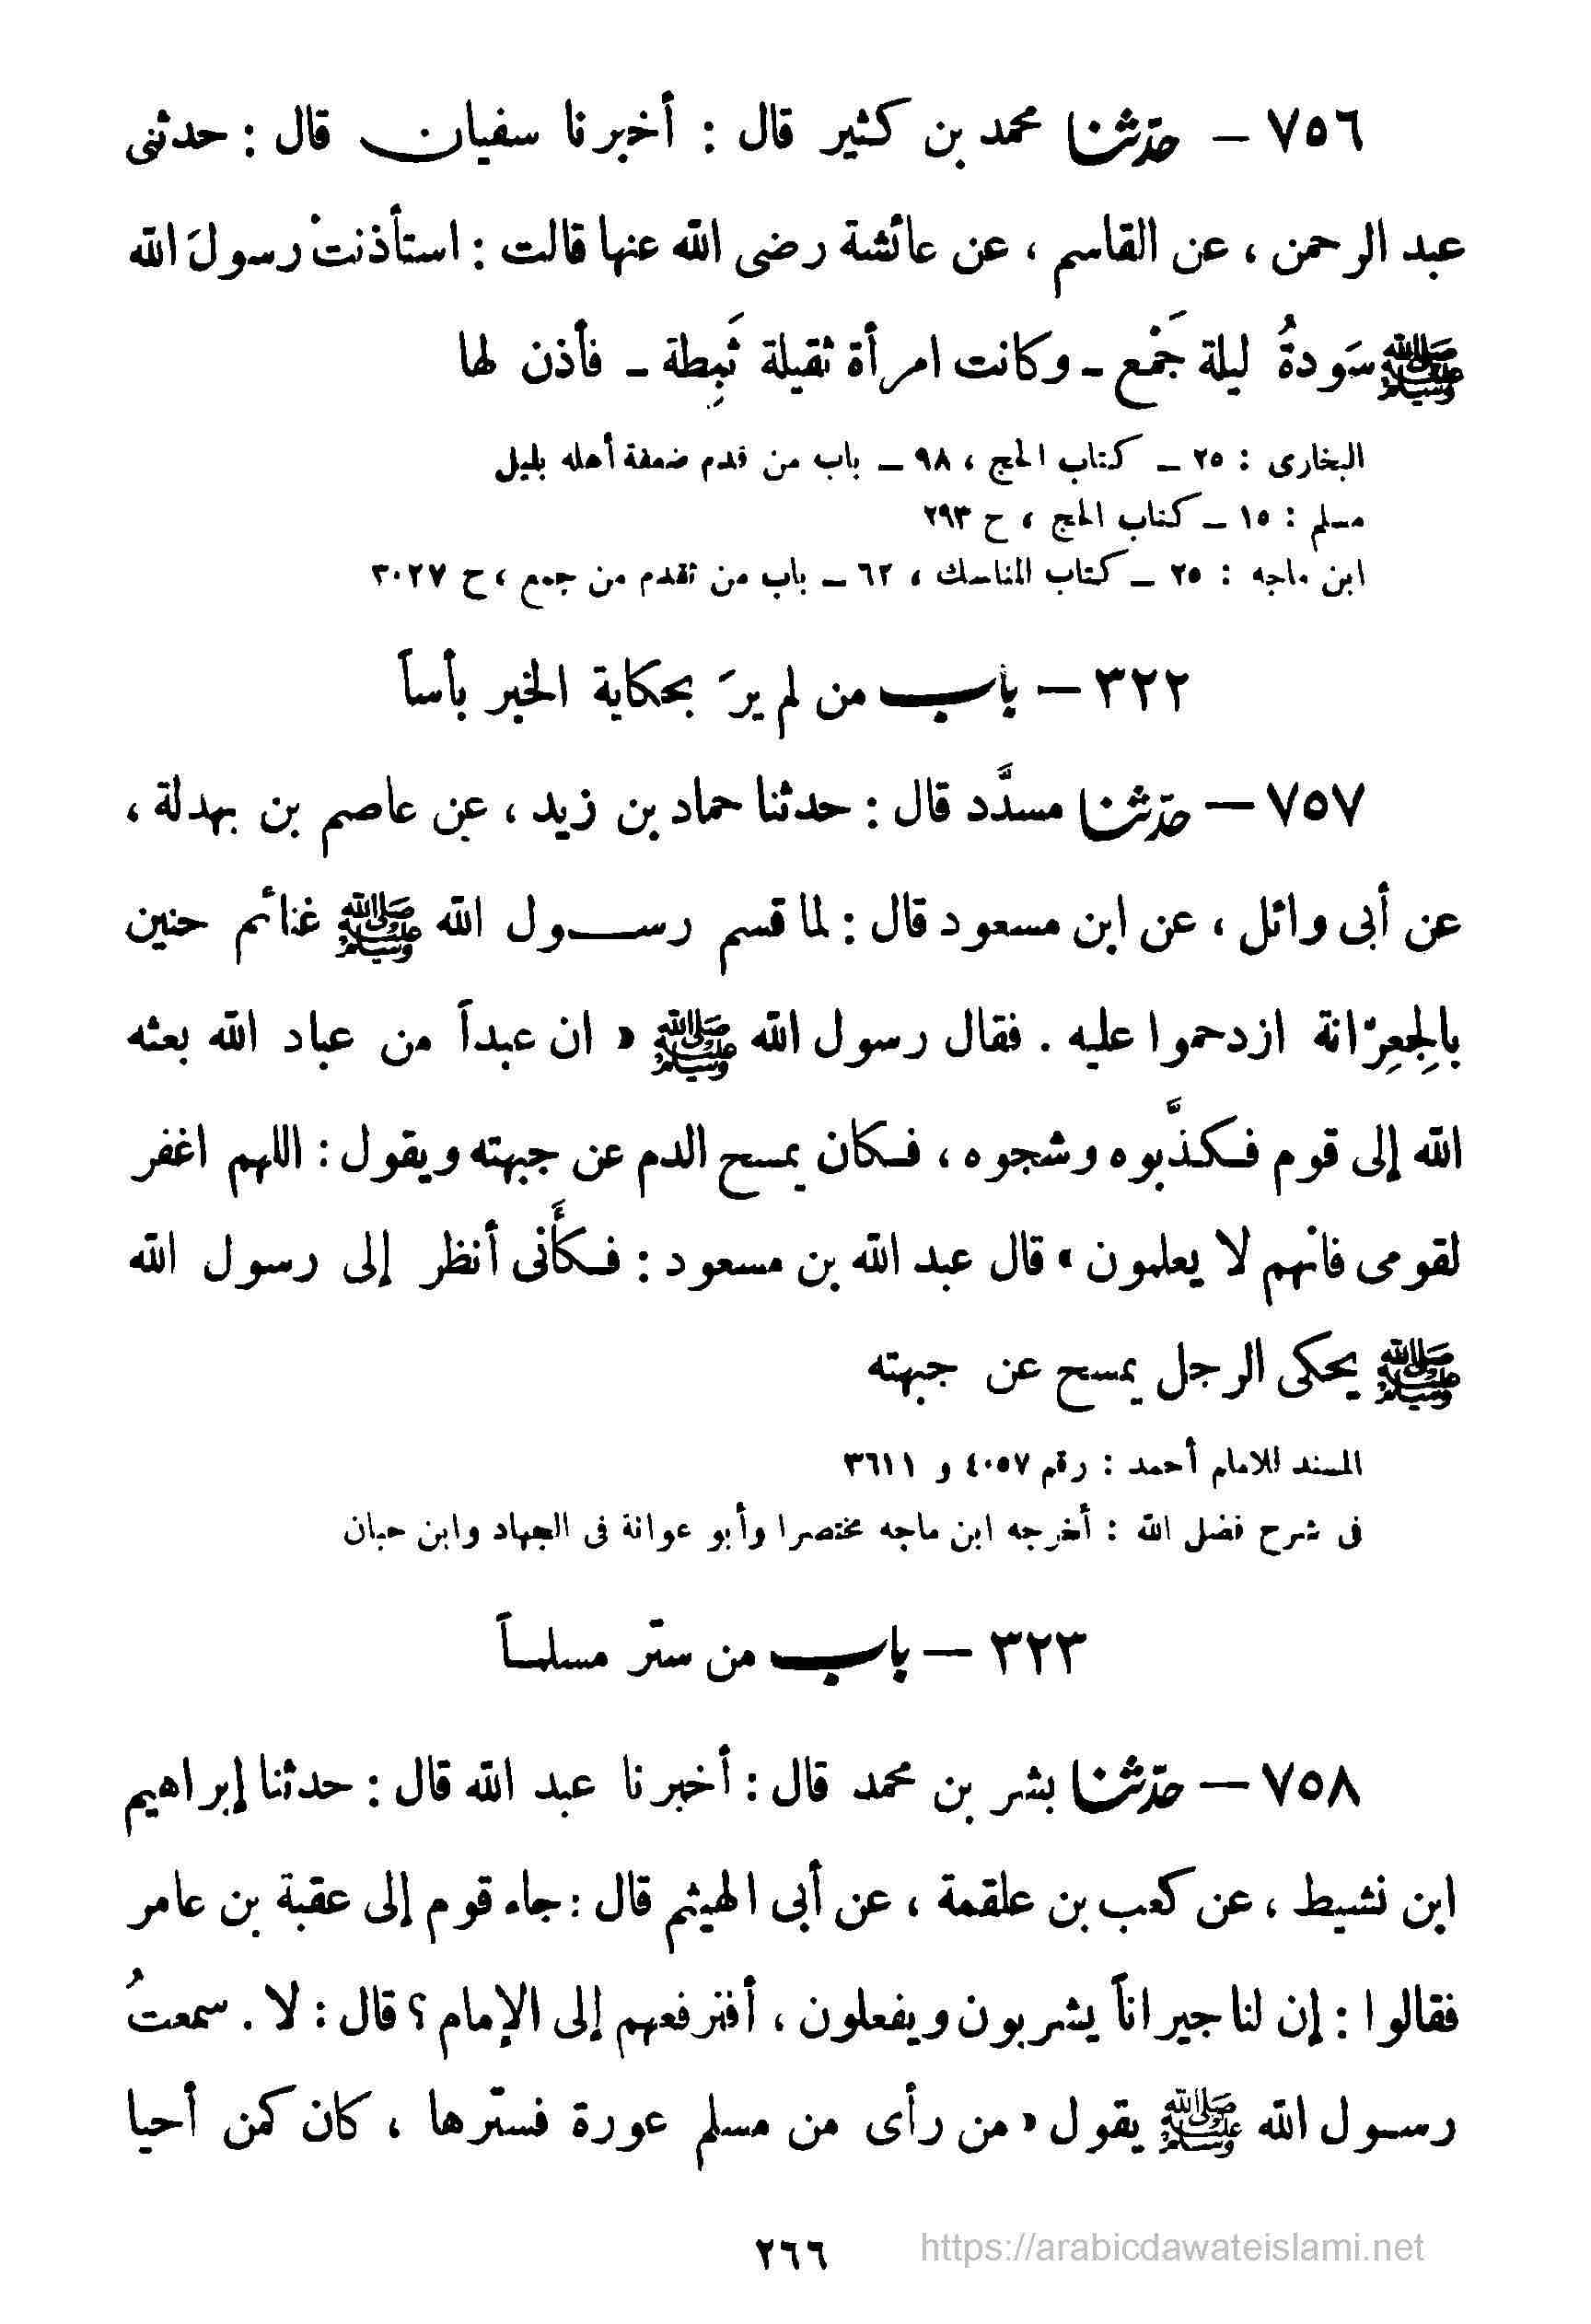 ٧٥٦ – حدّثنا محمد بن كثير قال : أخبرنا سفيان قال : حدثنى
عبد الرحمن ، عن القاسم ، عن عائشة رضى الله عنها قالت : استأذنتْ رسولَ الله
ﷺ سَودةُ ليلة جَمْع – وكانت امرأة ثقيلة ثَبِطة – فأذن لها
البخارى : ٢٥ – كتاب الحج ، ٩٨ – باب من قدم ضعفة أهله بليل
مسلم : ١٥ – كتاب الحج ، ح ٢٩٣
ابن ماجه : ٢٥ – كتاب المناسك ، ٦٢ – باب من تقدم من جمع ، ح ٣٠٢٧
٣٢٢ – باب من لم يرَ بحكاية الخبر بأساً
٧٥٧ – حدّثنا مسدَّد قال : حدثنا حماد بن زيد ، عن عاصم بن بهدلة ،
عن أبى وائل ، عن ابن مسعود قال : لما قسم رسول الله ﷺ غنائم حنين
بالِجعِرّانة ازدحموا عليه . فقال رسول الله ﷺ « ان عبداً من عباد الله بعثه
الله إلى قوم فكذَّبوه وشجوه ، فكان يمسح الدم عن جبهته ويقول : اللهم اغفر
لقومى فانهم لا يعلمون » قال عبد الله بن مسعود : فكأَنى أنظر إلى رسول الله
ﷺ يحكى الرجل يمسح عن جبهته
المسند للامام أحمد : رقم ٤٠٥٧ و ٣٦١١
فى شرح فضل الله : أخرجه ابن ماجه مختصرا وأبو عوانة فى الجهاد وابن حبان
٣٢٣ – باب من ستر مسلماً
٧٥٨ – حدّثنا بشر بن محمد قال : أخبرنا عبد الله قال : حدثنا إبراهيم
ابن نشيط ، عن كعب بن علقمة ، عن أبى الهيثم قال : جاء قوم إلى عقبة بن عامر
فقالوا : إن لنا جيراناً يشربون ويفعلون ، أفنرفعهم إلى الإمام ؟ قال : لا . سمعتُ
رسول الله ﷺ يقول « من رأى من مسلم عورة فسترها ، كان كمن أحيا
٢٦٦
https://arabicdawateislami.net